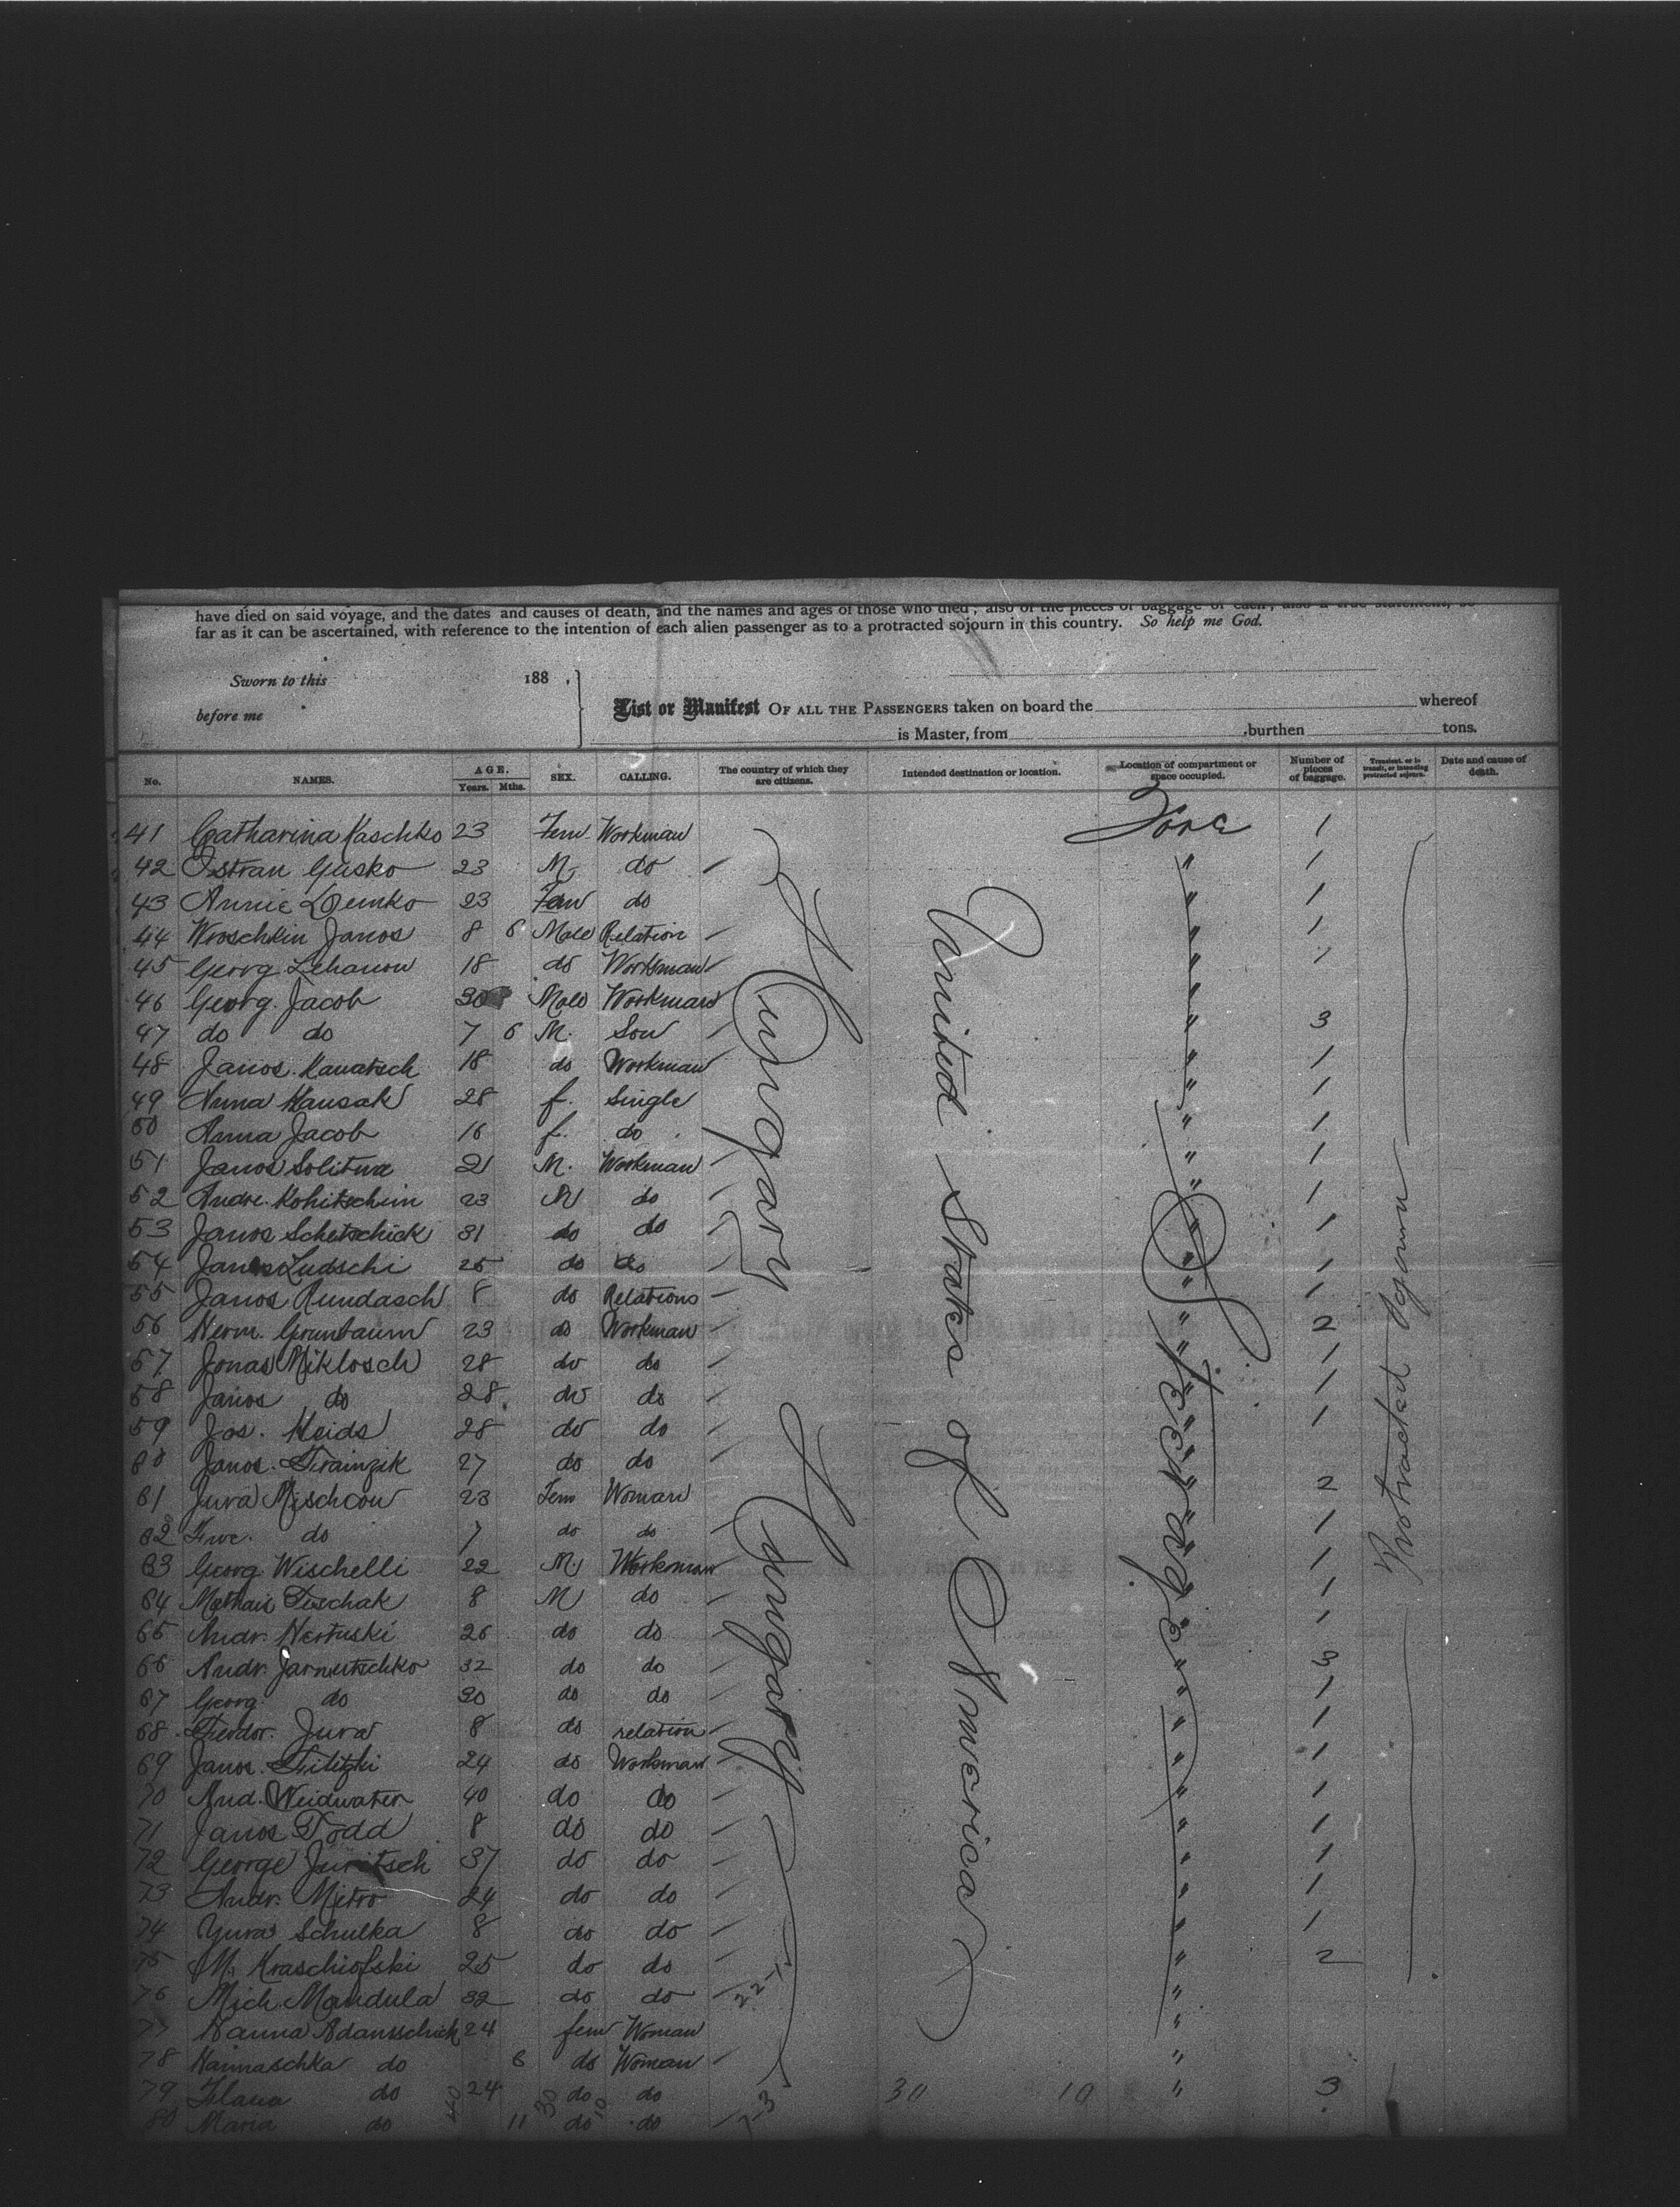 have died on said voyage, and the dates and causes of death, and the names and ages of those who died; also of the pieces of baggage of each; also a true statement, so
far as it can be ascertained, with reference to the intention of each alien passenger as to a protracted sojourn in this country. So help me God.
Sworn to this 188 ,
before me
List or Manifest OF ALL THE PASSENGERS taken on board the whereof
is Master, from burthen tons.
No. NAMES. AGE. Years. Mths. SEX. CALLING. The country of which they are citizens. Intended destination or location. Location of compartment or space occupied. Number of pieces of baggage. Transient, or in transit, or intending protracted sojourn. Date and cause of death.
41 Catharina Kaschko 23 Fem Workman Fore 1
42 Istvan Gusko 23 M. do " 1
43 Annie Demko 23 Fem do " 1
44 Woschkin Janos 8 6 Male Relation " 1
45 Georg Lehanow 18 do Workman " 1
46 Georg. Jacob 30 Male Workman "
47 do do 7 6 M. Son " 3
48 Janos. Kanatsch 18 do Workman " 1
49 Anna Hausak 28 f. Single " 1
50 Anna Jacob 16 f. do " 1
51 Janos Solitna 21 M. Workman " 1
52 Andre. Kohitschim 23 M do " 1
53 Janos Schetschick 31 do do " 1
54 Janos Ludschi 25 do do " 1
55 Janos Rundasch 8 do Relations " 1
56 Herm. Grunbaum 23 do Workman " 2
57 Jonas Miklosch 28 do do " 1
58 Janos do 28 do do " 1
59 Jos. Heids 28 do do " 1
60 Janos. Frainzik 27 do do "
61 Jura Mischcow 23 Fem Woman " 2
62 do 7 do do " 1
63 Georg. Wischelli 22 M. Workman " 1
64 Duschak 8 M do " 1
65 Andr. Hertuski 26 do do " 1
66 Andr. Jarnutschko 32 do do " 3
67 Georg. do 30 do do " 1
68 Feodor. Jura 8 do relation " 1
69 Janos. Filitzki 24 do Workman " 1
70 And. Weidwater 40 do do " 1
71 Janos Todd 8 do do " 1
72 George Juritsch 37 do do " 1
73 Andr. Mitro 24 do do " 1
74 Yura Schulka 8 do do " 1
75 M. Kraschiofski 25 do do " 2
76 Mich. Mandula 32 do do "
77 Hanna Adamschick 24 fem Woman "
78 Hannaschka do 6 do Woman "
79 Ilana do 24 do do " 3
80 Maria do 11 do do
Hungary
Hungary
United States of America
Steerage
Protracted Sojourn
30 10